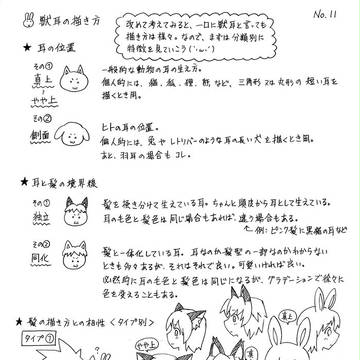 獣耳の描き方
No.11
改めて考えてみると、一口に獣耳と言っても
描き方は様々。なので、まずは分類別に
特徴を見ていこう(´・ω・`)
★ 耳の位置
その①
真上
やや上
一般的な動物の耳の生え方。
個人的には、猫、狐、狸、熊など、三角形又は丸形の短い耳を
描くとき用。
その②
側面
ヒトの耳の位置。
個人的には、兎やレトリバーのような耳の長い犬を描くとき用。
あと、羽耳の場合もコレ。
★ 耳と髪の境界線
その①
独立
髪を掻き分けて生えている耳。ちゃんと頭皮から耳として生えている。
耳の毛色と髪色は同じ場合もあれば、違う場合もある。
例:ピンク髪に黒猫の耳など
その②
同化
髪と一体化している耳。耳なのか髪型の一部なのかわからない
ときも多々あるが、それはそれで良い。可愛いければ良い。
必然的に耳の毛色と髪色は同じになるが、グラデーションで徐々に
色を変えることもある。
★ 髪の描き方との相性<タイプ別>
タイプ①
やや上
真上